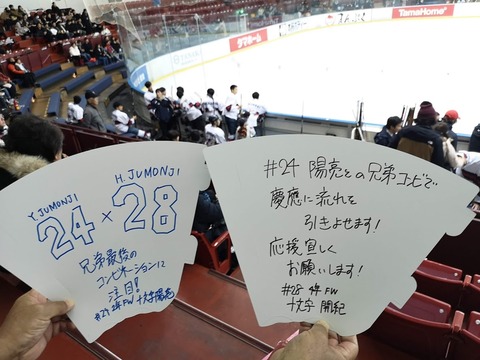 Y. JUMONJI
H. JUMONJI
24 × 28
兄弟最後の
コンビネーションに
注目!
#24 4年FW 十文字陽亮
#24 陽亮との兄弟コンビで
慶應に流れを
引きよせます!
応援宜しく
お願いします!
#28 4年 FW
十文字 開紀
タマホーム
TamaHome